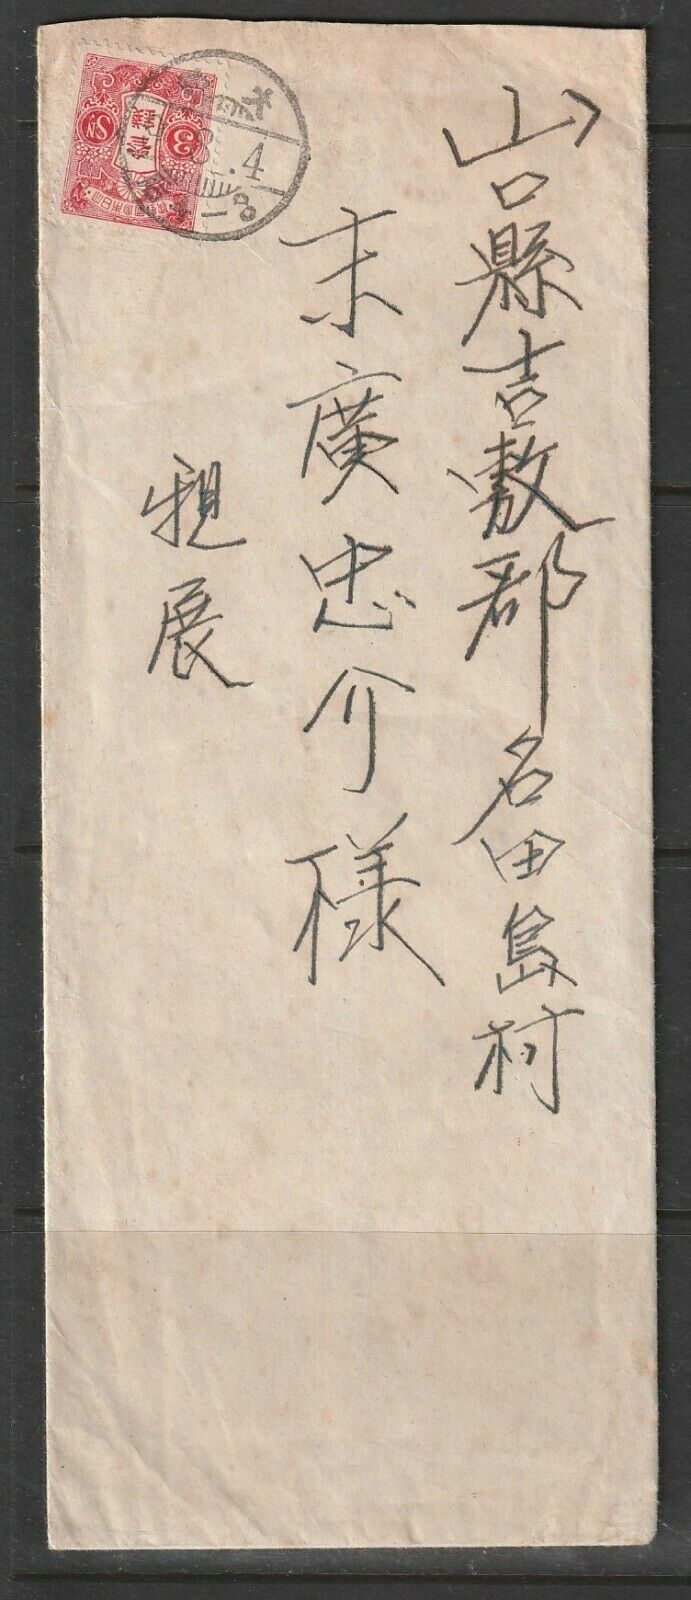 山口縣吉敷郡名田島村
末廣忠介様
親展
3 SN
.4